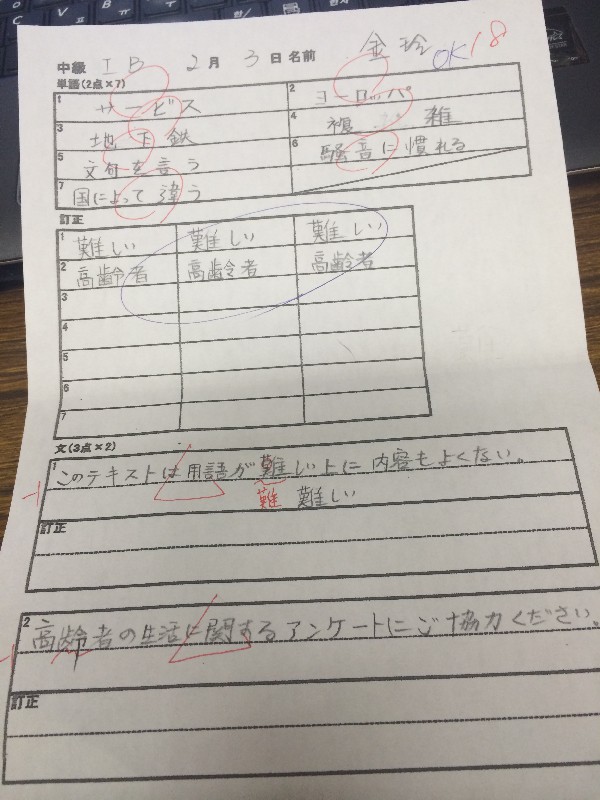 中級 I B 2月 3日 名前 金玲 OK 18
単語(2点×7)
1 サービス 2 ヨーロッパ
3 地下鉄 4 複雑
5 文句を言う 6 騒音に慣れる
7 国によって違う
訂正
1 難しい 難しい 難しい
2 高齢者 高齢者 高齢者
3
4
5
6
7
文(3点×2)
1 このテキストは用語が難しい上に内容もよくない。
-1 難 難しい
訂正
2 高齢者の生活に関するアンケートにご協力ください。
-1
訂正